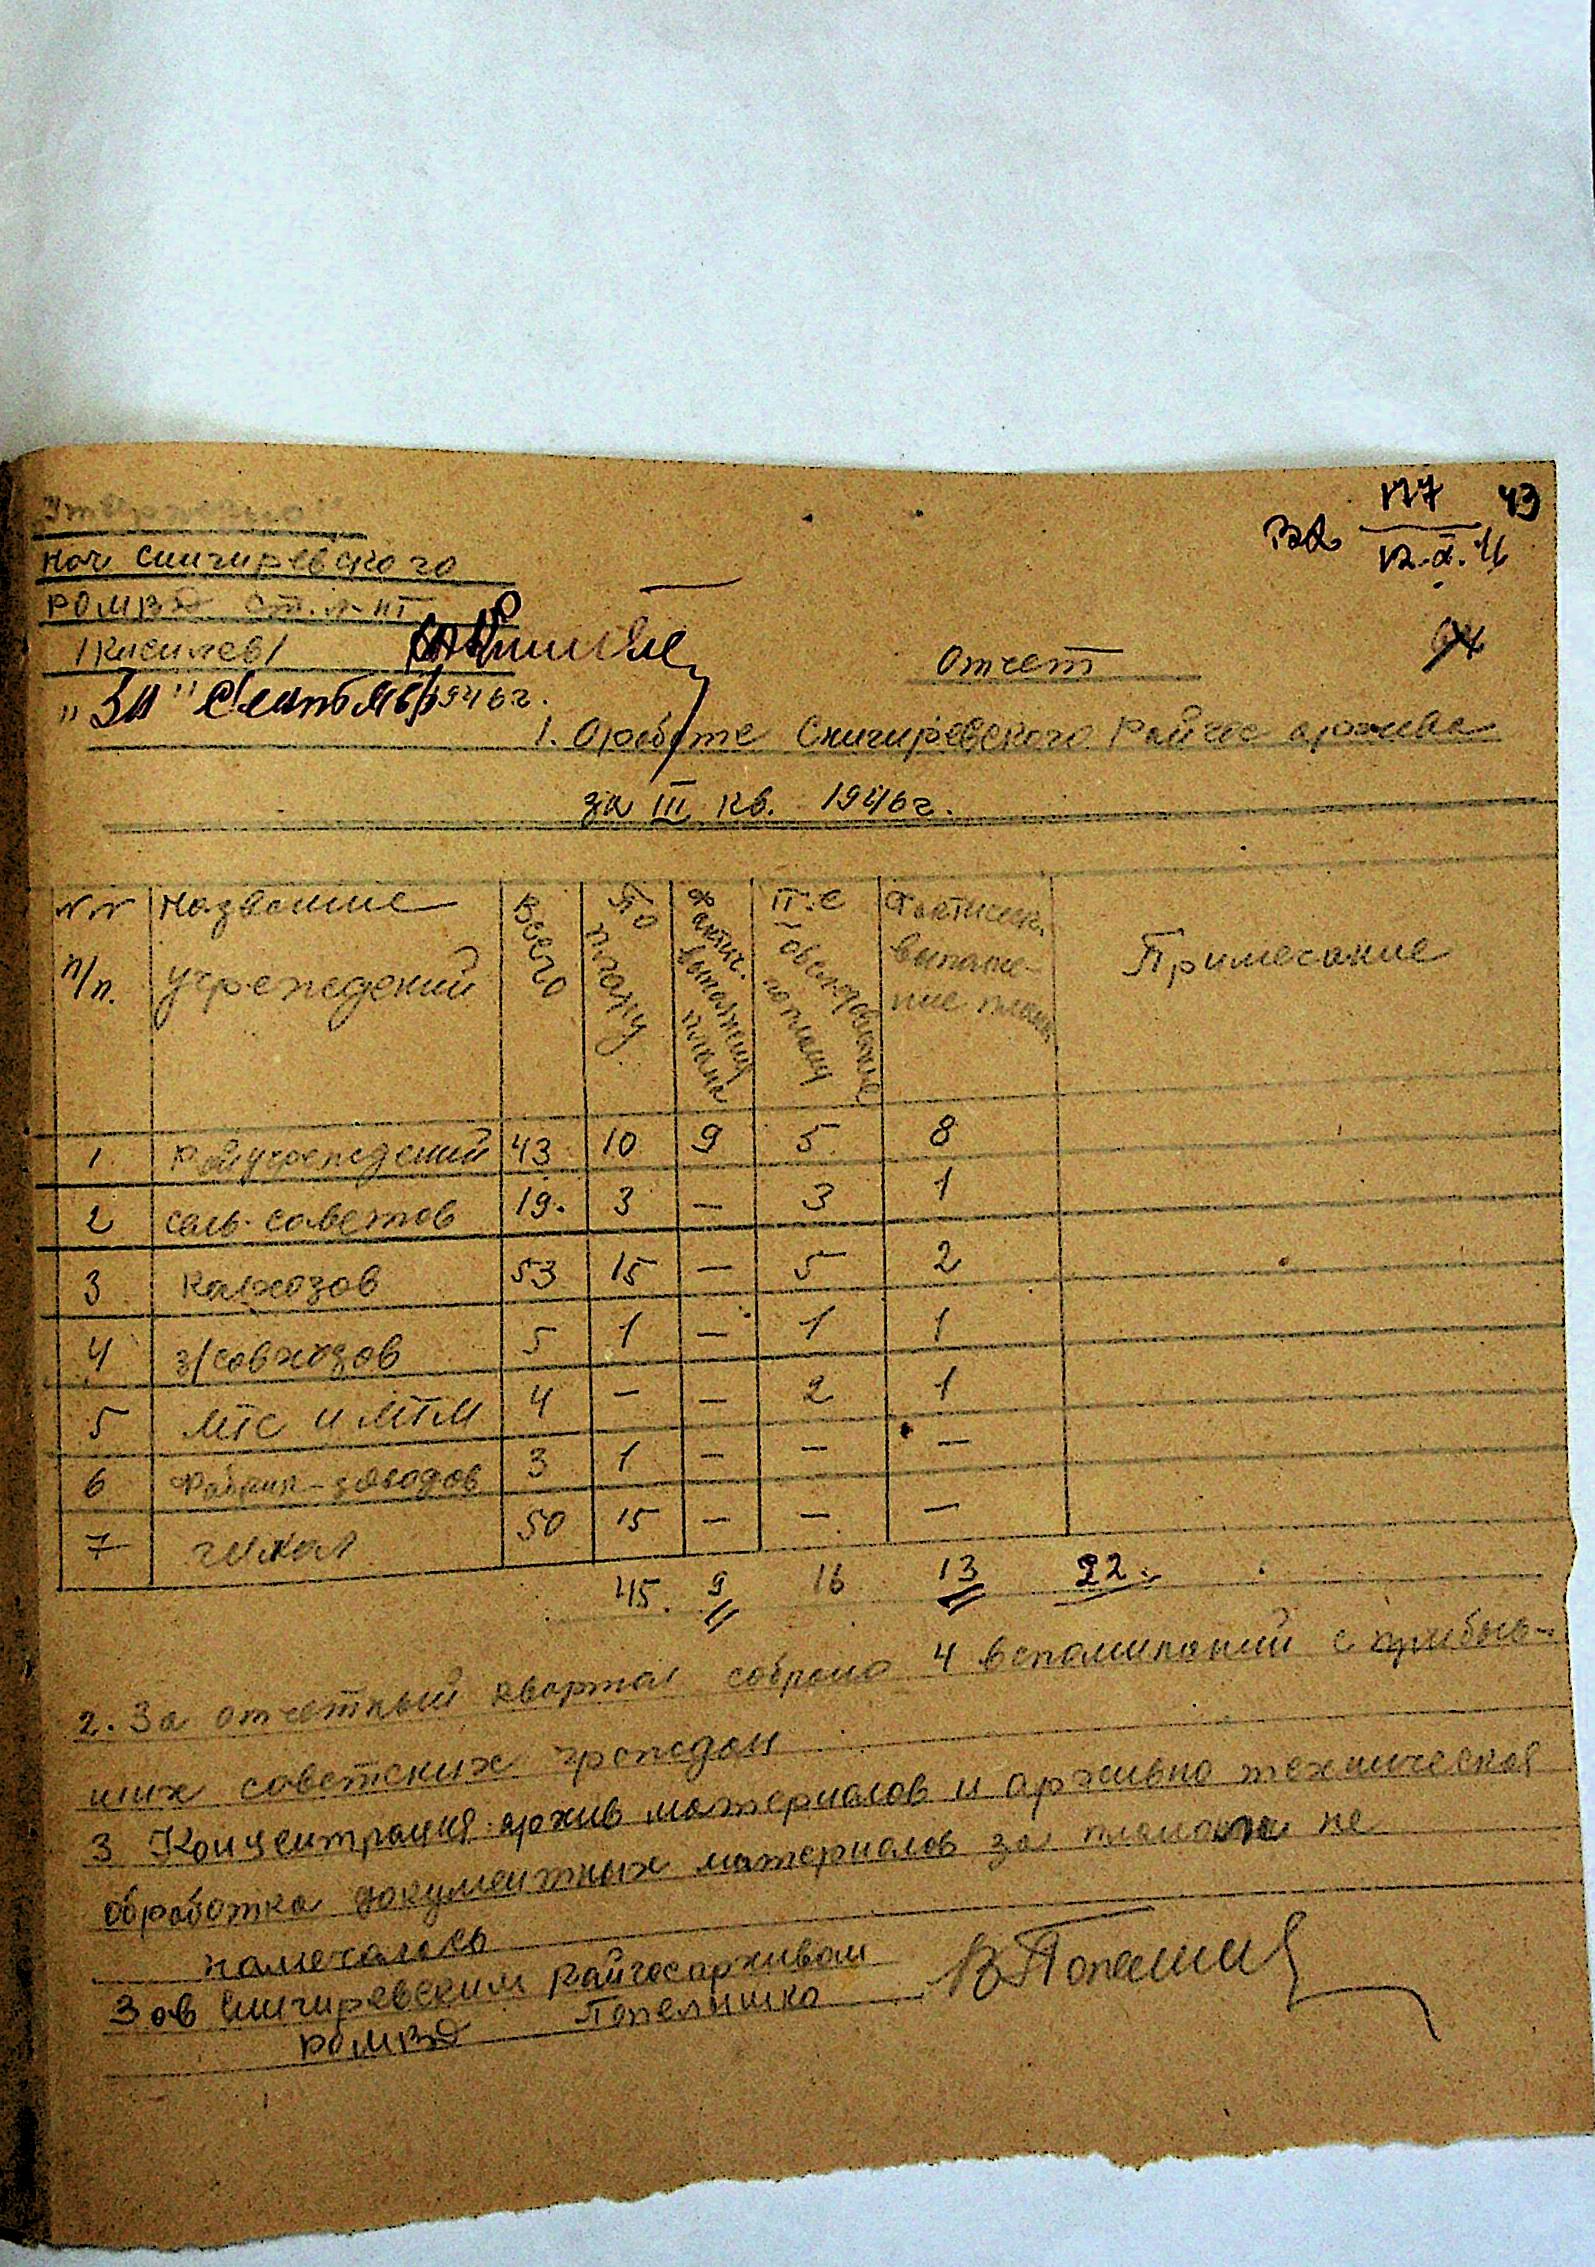 "Утверждаю"
Нач Снигиревского
РОМВД ст. л-нт
/Киселев/
"30" Сентября 1946 г.
Вх 177 43
12.X.46
Отчет
1. О работе Снигиревского Райгос архива
за III кв. 1946 г.
№№ п/п. Название учреждений Всего По плану Фактич. выполнения плана П.С обследование по плану Фактическ. выполне-ние плана Примечание
1 Райучреждений 43 10 9 5 8
2 сель. советов 19. 3 — 3 1
3 Колхозов 53 15 — 5 2
4 з/совхозов 5 1 — 1 1
5 МТС и МТМ 4 — — 2 1
6 Фабрик-заводов 3 1 — — —
7 школ 50 15 — — —
45. 9 16 13 22.
2. За отчетный квартал собрано 4 вспоминаний с прибыв-
ших советских граждан
3 Концентрация архив материалов и архивно техническая
обработка документных материалов за планом не
намечалось
Зав Снигиревским Райгосархивом
РОМВД Попелышко